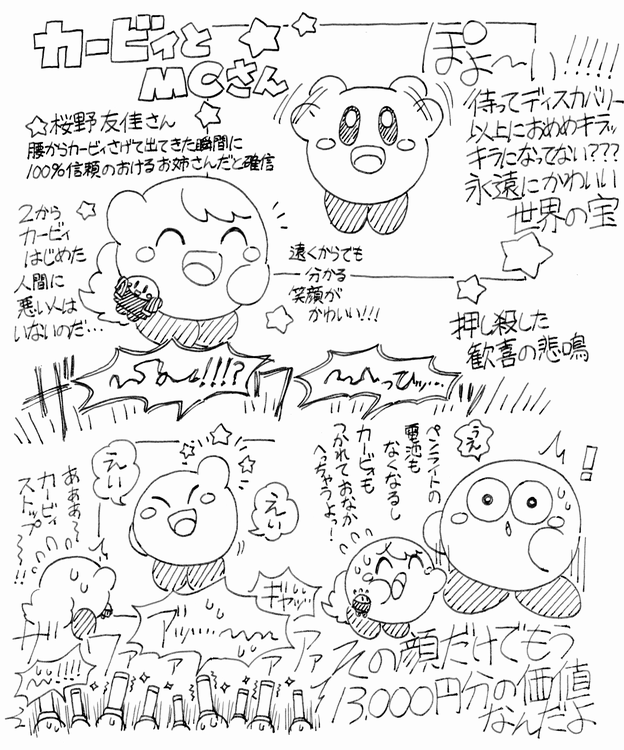 カービィと
MCさん
ぽよ〜い!!!!!
待ってディスカバリー
以上におめめキラッ
キラになってない???
永遠にかわいい
世界の宝
☆桜野友佳さん
腰からカービィさげて出てきた瞬間に
100%信頼のおけるお姉さんだと確信
2から
カービィ
はじめた
人間に
悪い人は
いないのだ…
遠くからでも
分かる
笑顔が
かわいい!!!
押し殺した
歓喜の悲鳴
〜〜っひッ…
えい
えい
あぁぁ〜
カービィ
ストップ〜!!
ペンライトの
電池も
なくなるし
カービィも
つかれておなか
へっちゃうよっ!
うえ
!
ギャッ…
アッ…〜〜
ファァァァァ
〜〜!!!!
その顔だけでもう
13,000円分の価値
なんだよ